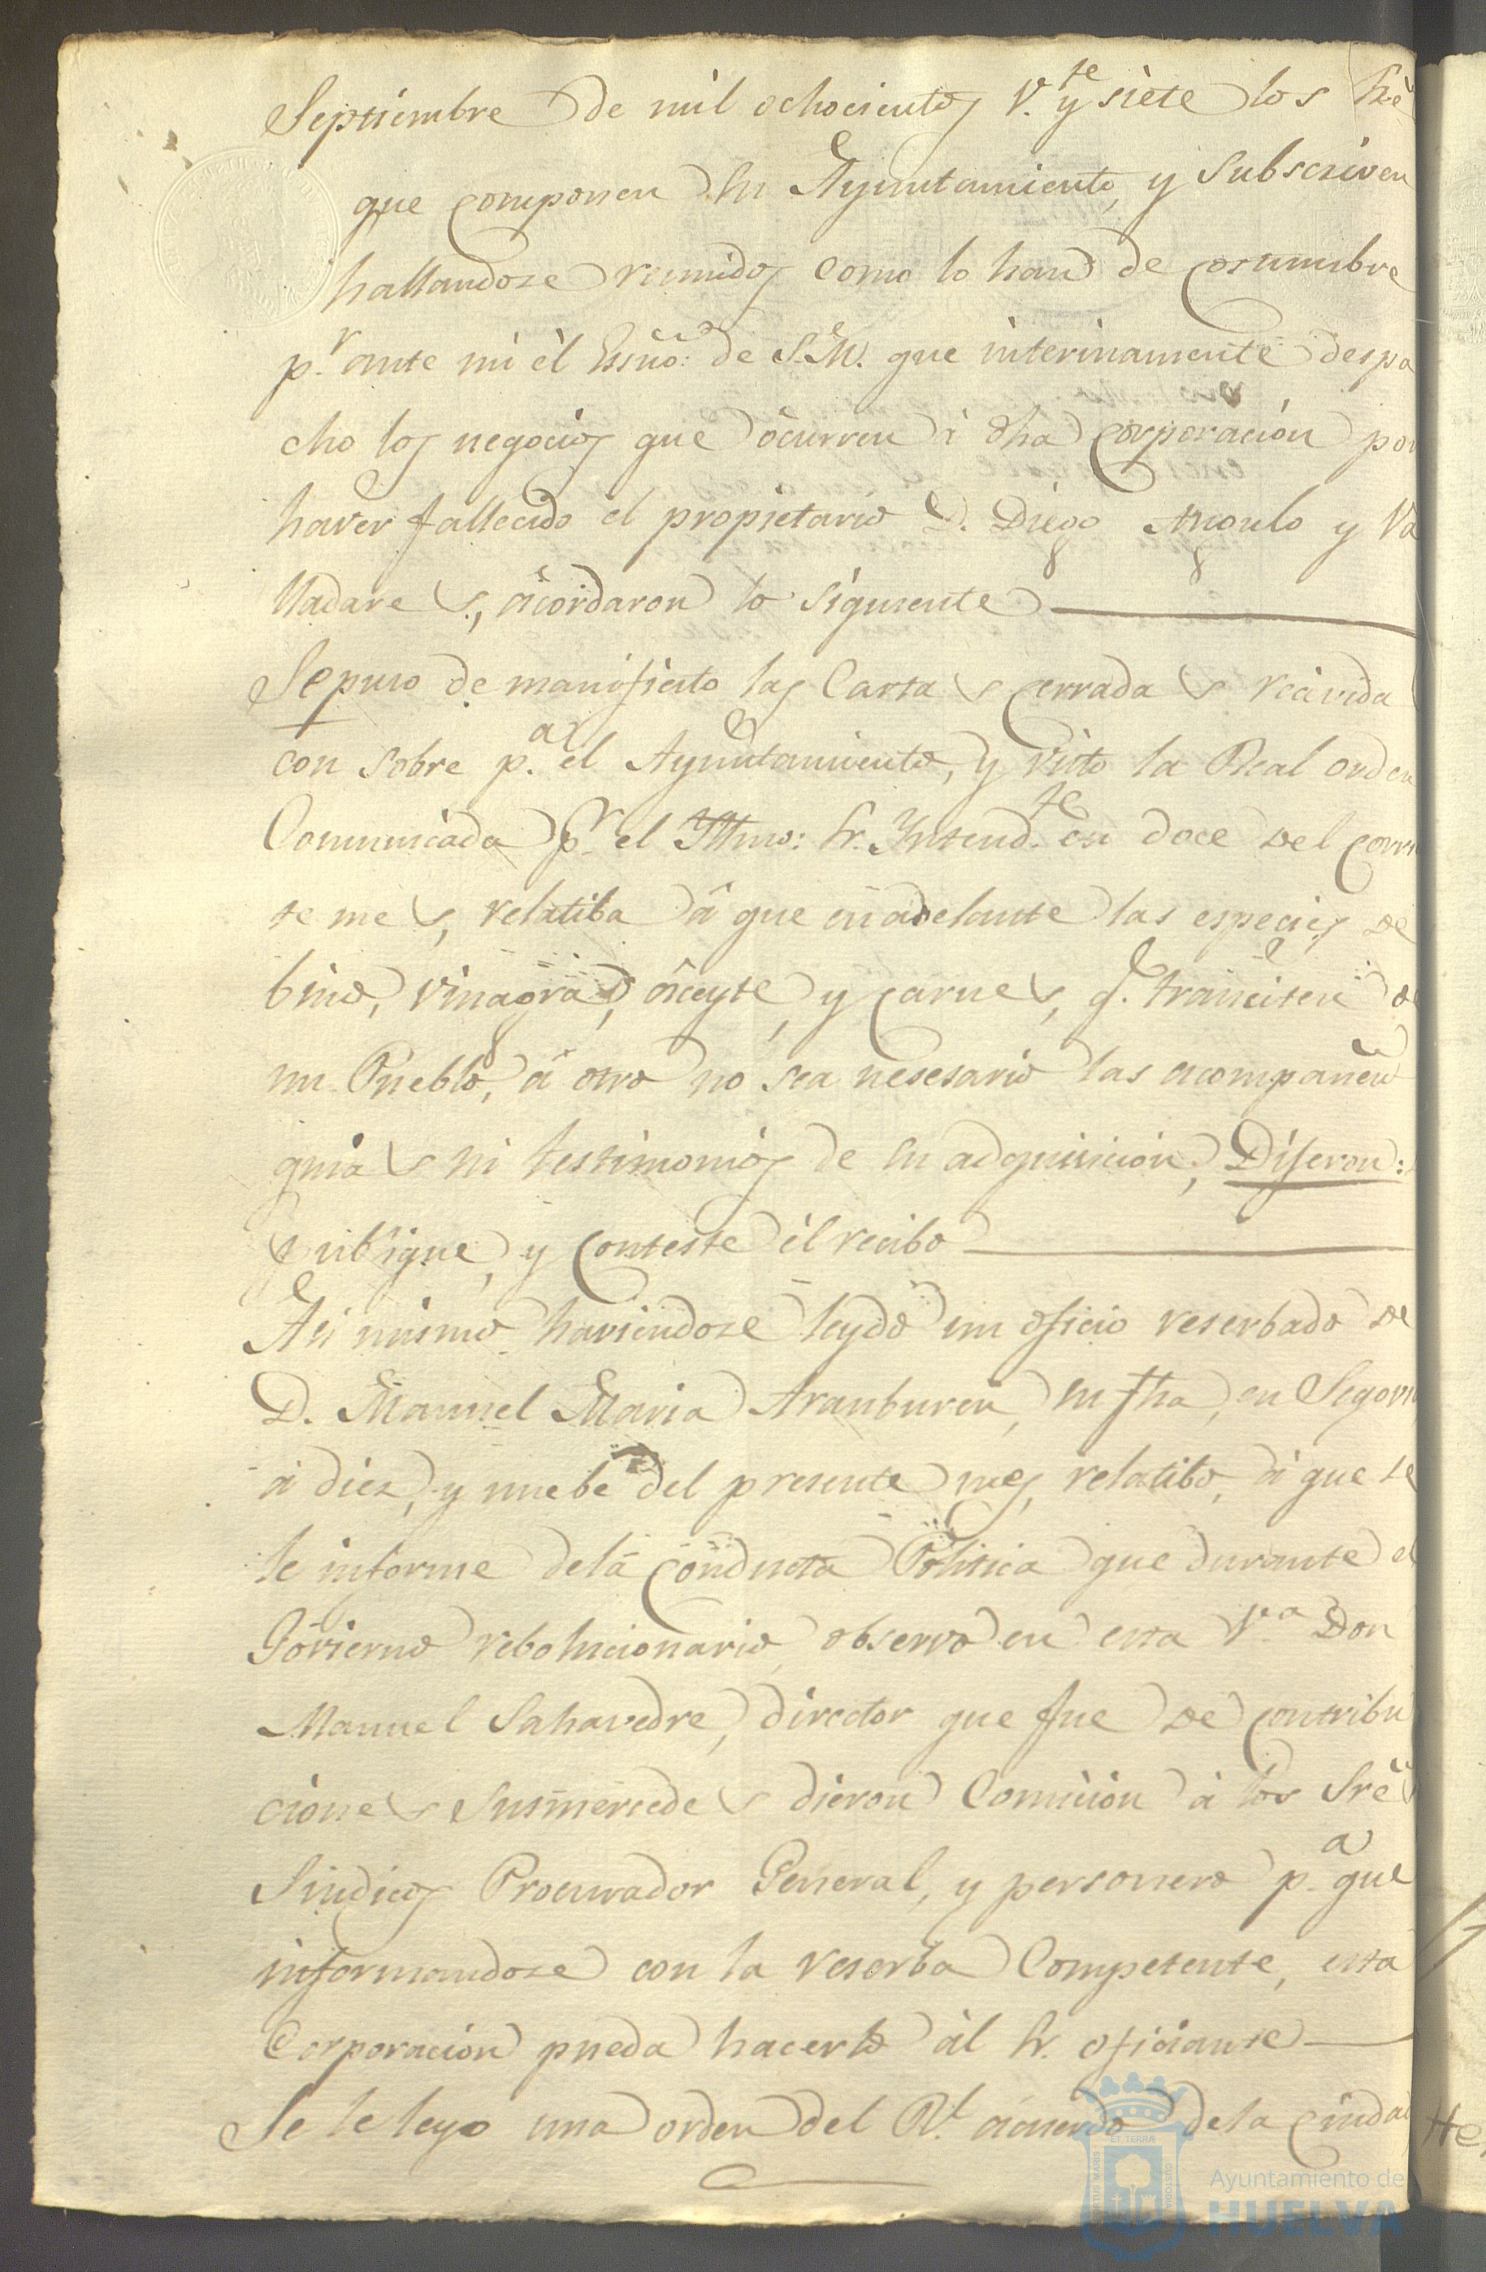 Septiembre de mil ochocientos v.te y siete los Sres
que componen su Ayuntamiento, y subscriven
hallandose reunidos como lo han de costumbre
p.r ante mi él Essno: de S.M. que interinamente despa
cho los negocios que ócurren á dha Corporación por
haver fallecido el propietario D. Diego Angulo y Va
lladares, acordaron lo siguiente
Sepuso de manifiesto las Cartas cerradas recivida
con sobre p.a el Ayuntamiento, y visto la Real orden
Comunicada p.r el Yltmo: Sr. Yntend.te en doce del corrien
te mes, relatiba á que en adelante las especies de
bino, vinagra, áceyte, y carnes, q.e transciten de
un Pueblo, á otro no sea nesesario las acompañen
guias ni testimonios de su adquisición; Dijeron:
publique, y conteste él recibo
Asi mismo haviendose leydo un oficio reserbado de
D. Manuel Maria Aranburen, su fha, en Segovia
á diez, y nuebe del presente mes, relatibo, á que se
le informe dela Conducta Politica que durante el
Govierno rebolucionario observo en esta V.a Don
Manuel Sahavedre, director que fue de contribu
ciones susmercedes dieron Comición á los Sres
Sindicos Procurador General, y personero p.a que
informandose con la reserba Competente, esta
Corporación pueda hacerlo ál Sr. oficiante
Se le leyo una orden del R.l acuerdo dela Ciudad
Ayuntamiento de
HUELVA